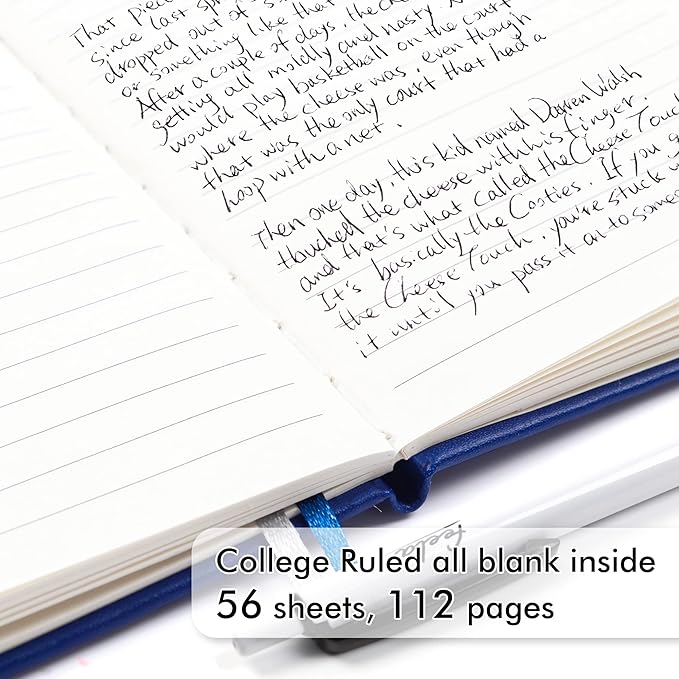 That piece
Since last spr
dropped out of s
or something like that
After a couple of days, the che
getting all moldly and nasty. N
would play basketball on the court
where the cheese was, even though
that was the only court that had a
hoop with a net.
Then one day, this kid named Darren Walsh
thouched the cheese with his finger.
and that's what called the Cheese Touch
It's basically the Cooties. If you g
the Cheese Touch, you're stuck w
it until you pass it on to someo
feela
College Ruled all blank inside
56 sheets, 112 pages